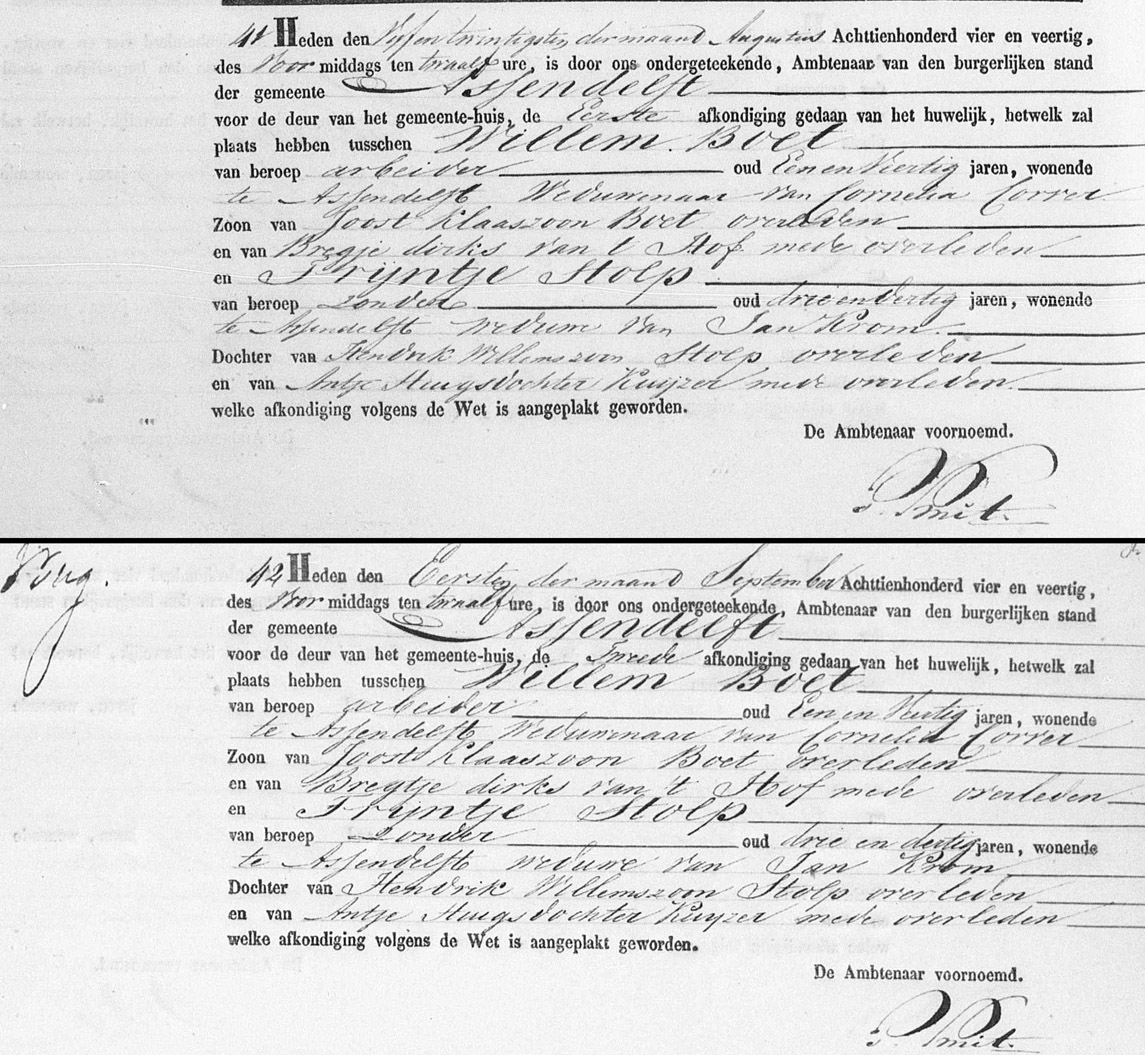 41 Heden den Vijfentwintigsten der maand Augustus Achttienhonderd vier en veertig,
des Voor middags ten twaalf ure, is door ons ondergeteekende, Ambtenaar van den burgerlijken stand
der gemeente Assendelft
voor de deur van het gemeente-huis, de Eerste afkondiging gedaan van het huwelijk, hetwelk zal
plaats hebben tusschen Willem Boet
van beroep arbeider oud Een en Veertig jaren, wonende
te Assendelft Weduwenaar van Cornelia Correr
Zoon van Joost Klaaszoon Boet overleden
en van Bregje dirks van 't Hof mede overleden
en Trijntje Stolp
van beroep zonder oud drie en dertig jaren, wonende
te Assendelft weduwe van Jan Krom
Dochter van Hendrik Willemszoon Stolp overleden
en van Antje Huigsdochter Kuijzer mede overleden
welke afkondiging volgens de Wet is aangeplakt geworden.
De Ambtenaar voornoemd.
P. Smit.
42 Heden den Eersten der maand September Achttienhonderd vier en veertig,
des Voor middags ten twaalf ure, is door ons ondergeteekende, Ambtenaar van den burgerlijken stand
der gemeente Assendelft
voor de deur van het gemeente-huis, de tweede afkondiging gedaan van het huwelijk, hetwelk zal
plaats hebben tusschen Willem Boet
van beroep arbeider oud Een en Veertig jaren, wonende
te Assendelft Weduwenaar van Cornelia Correr
Zoon van Joost Klaaszoon Boet overleden
en van Bregtje dirks van 't Hof mede overleden
en Trijntje Stolp
van beroep zonder oud drie en dertig jaren, wonende
te Assendelft weduwe van Jan Krom
Dochter van Hendrik Willemszoon Stolp overleden
en van Antje Huigsdochter Kuyzer mede overleden
welke afkondiging volgens de Wet is aangeplakt geworden.
De Ambtenaar voornoemd.
P. Smit.